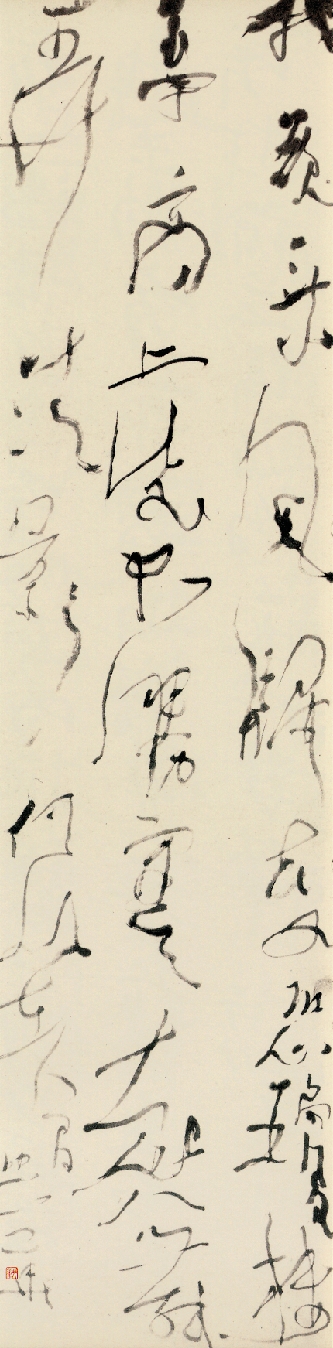 我欲乘風歸去又恐瓊樓
玉宇高處不勝寒起舞
弄清影何似在人間